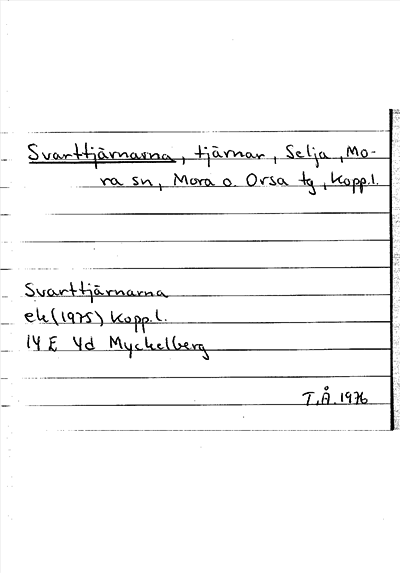 Svarttjärnarna, tjärnar, Selja, Mo-
ra sn, Mora o. Orsa tg, Kopp.l.
Svarttjärnarna
ek (1975) Kopp.l.
14 E 4d Myckelberg
T.Å. 1976